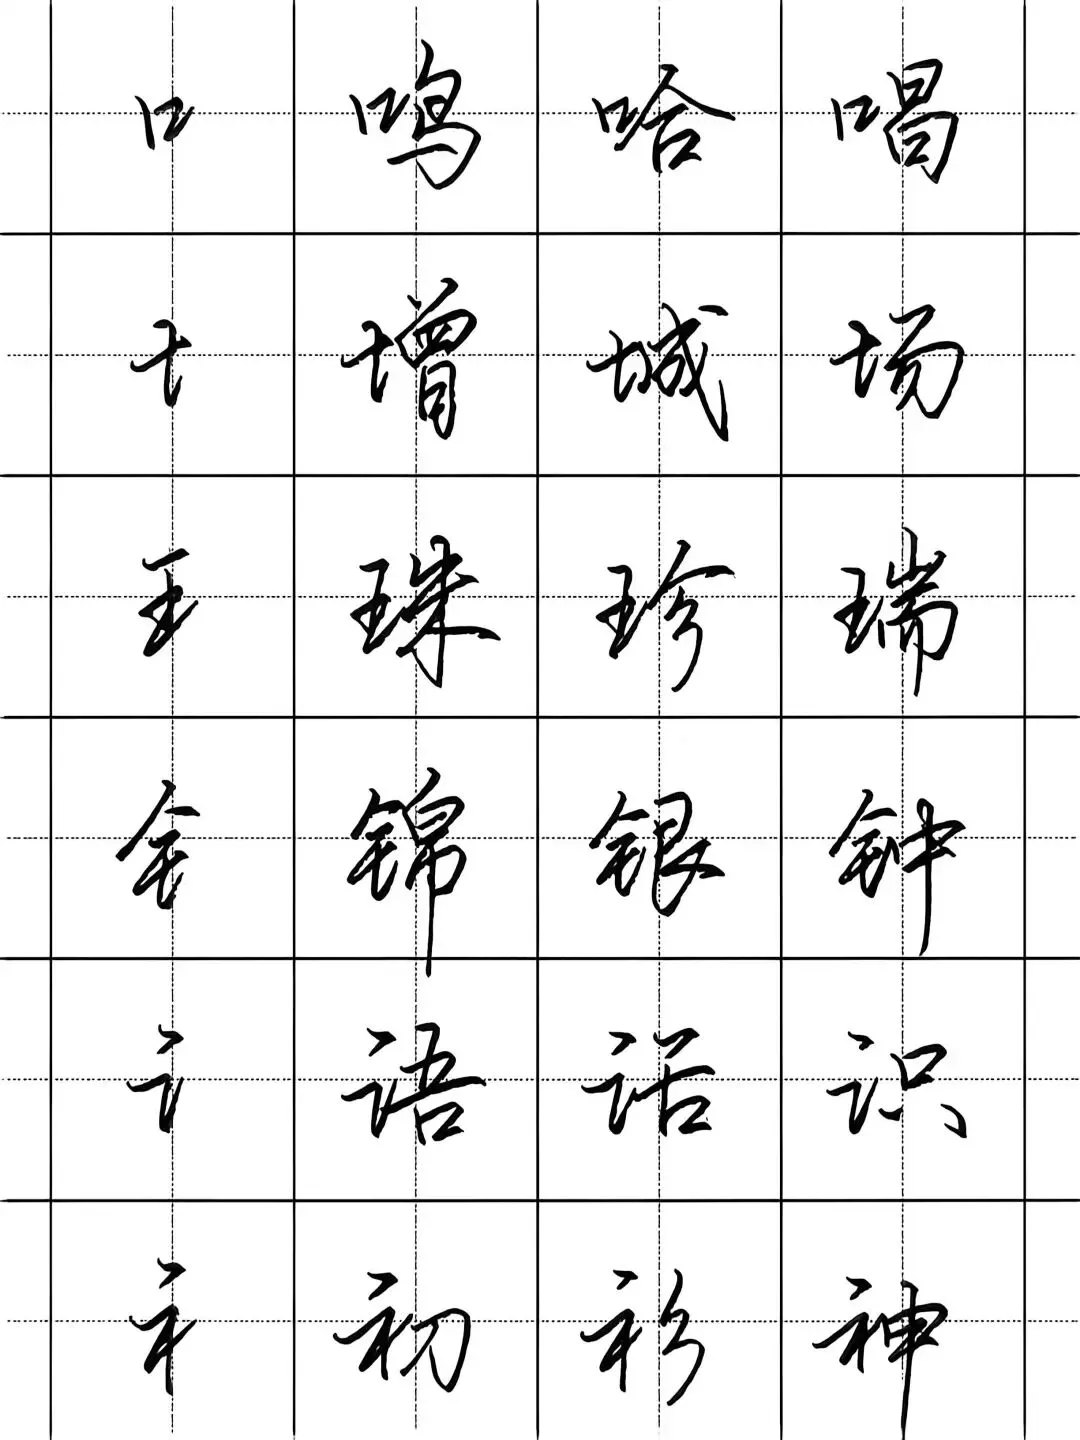 口 鸣 哈 唱
土 增 城 场
王 珠 珍 瑞
钅 锦 银 钟
讠 语 话 识
衤 初 衫 神